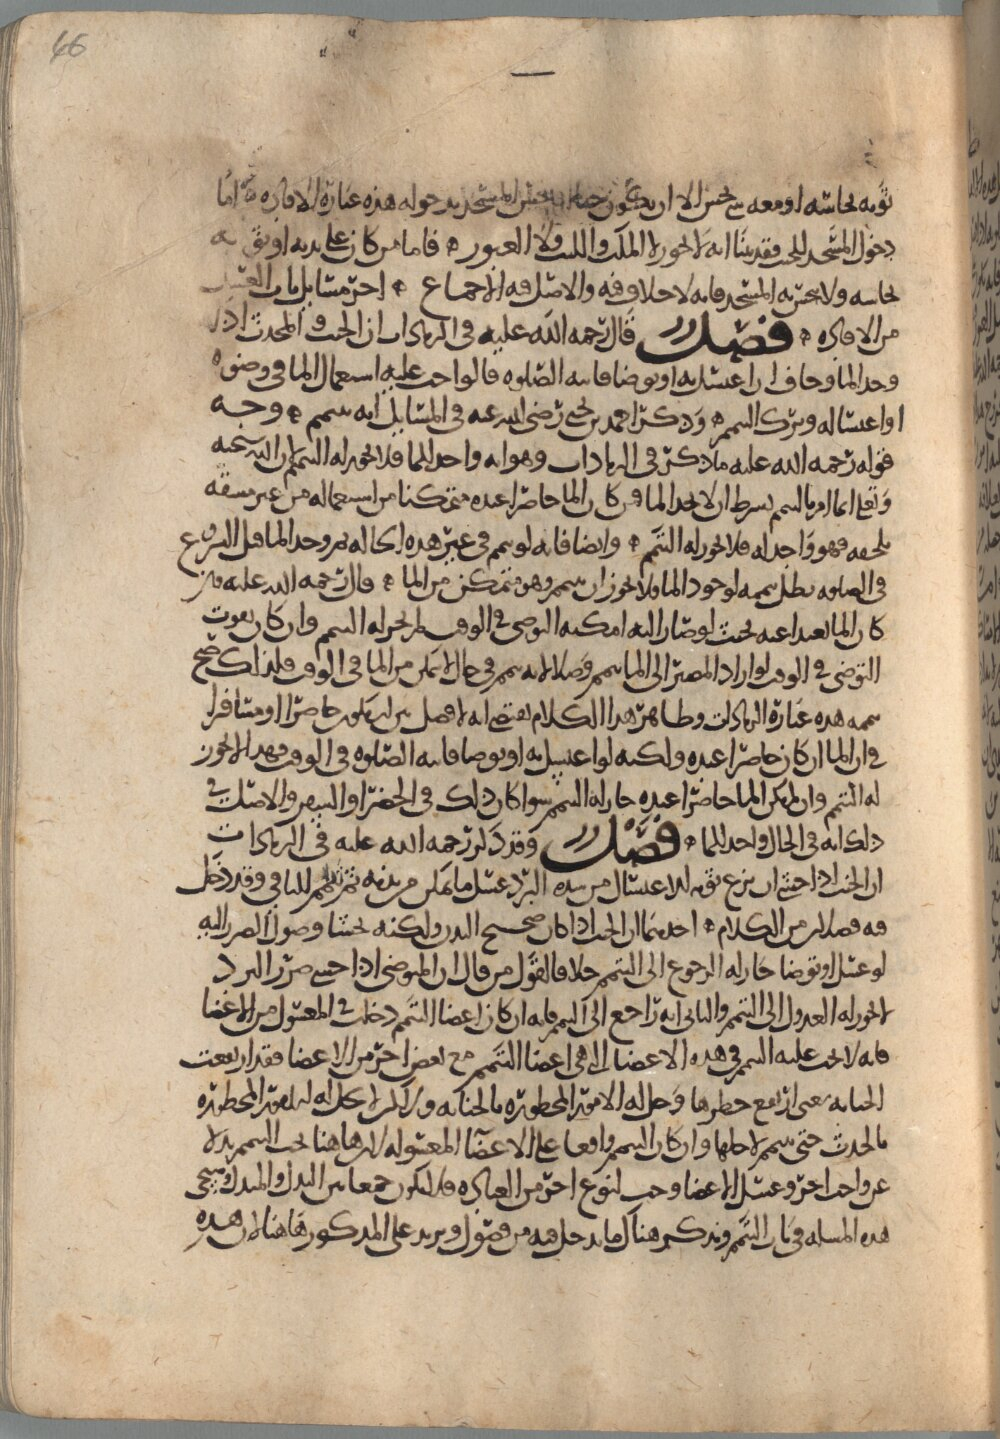 46
ثوبه نجاسه او معه شي نجس الا ان يكون المسجد بدخوله هذه عبارة الافاده اما
دخول المسجد للجنب فقد بينا انه لا يجوز لا المكث واللبث ولا العبور فاما من كان على بدنه او ثوبه
نجاسه ولا ينجس به المسجد فانه لا خلاف فيه والاصل فيه الاجماع اخر مسايل باب الغسل
من الافاده فصل قال رحمه الله عليه في الزيادات ان الجنب والمحدث اذا
وجد الما وخاف ان اغتسل به او توضا فاتته الصلوه فالواجب عليه استعمال الما في وضوه
او اغتساله وترك التيمم وذكر احمد بن يحيى رضي الله عنه في المسايل انه يتيمم وجه
قوله رحمه الله عليه ما ذكر في الزيادات وهو انه واجد للما فلا يجوز له التيمم لان الله سبحنه
وتعلى انما امر بالتيمم بشرط ان لا يجد الما فمن كان الما حاضرا عنده متمكنا من استعماله من غير مشقه
تلحقه فهو واجد له فلا يجوز له التيمم وايضا فانه لو تيمم في غير هذه الحاله ثم وجد الما قبل الشروع
في الصلوه بطل تيممه لوجود الما ولا يجوز ان يتيمم وهو متمكن من الما قال رحمه الله عليه فان
كان الما بعيدا عنه بحيث لو صار اليه امكنه التوضي في الوقت لم يجز له التيمم وان كان يفوت
التوضي في الوقت لو اراد المصير الى الما تيمم وصلا لانه تيمم في حال لا يتمكن من الما في الوقت فلذلك صح
تيممه هذه عبارة الزيادات وظاهر هذا الكلام يقتضي انه لا فصل بين ان يكون حاضرا او مسافرا
في ان الما ان كان حاضرا عنده ولكنه لو اغتسل به او توضا فاتته الصلوه في الوقت فهذا لا يجوز
له التيمم وان لم يكن الما حاضرا عنده جاز له التيمم سوا كان ذلك في الحضر او السفر والاصل في
ذلك انه في الحال واجد للما فصل وقد ذكر رحمه الله عليه في الزيادات
ان الجنب اذا خشي ان ينزع ثوبه للاغتسال من شده البرد غسل ما يمكن من بدنه ثم تيمم للباقي وقد دخل
فيه فصلان من الكلام احدهما ان الجنب اذا كان صحيح البدن ولكنه يخشا وصول الضرر اليه
لو غسل او توضا جاز له الرجوع الى التيمم خلافا لقول من قال ان المتوضي اذا خشي ضرر البرد
لا يجوز له العدول الى التيمم والثاني انه راجع الى التيمم فانه ان كان اعضا التيمم دخلت في المغسول من الاعضا
فانه لا يجب عليه التيمم في هذه الاعضا التي هي اعضا التيمم مع بعض اخر من الاعضا فقد ارتفعت
الجنابه بمعنى ارتفع حظرها وحل له الامور المحظوره بالجنابه وان لم يحل له الامور المحظوره
بالحدث حتى يتيمم لاجلها وان كان التيمم واقعا على الاعضا المغسوله لان هاهنا يجب التيمم بدلا
عن واجب اخر وغسل الاعضا وجب لنوع اخر من العباده فلا يكون جمعا بين البدل والمبدل وستجي
هذه المسله في باب التيمم ونذكر هناك ما يدخل فيه من فصول ويزيد على المذكور هاهنا لان هذه